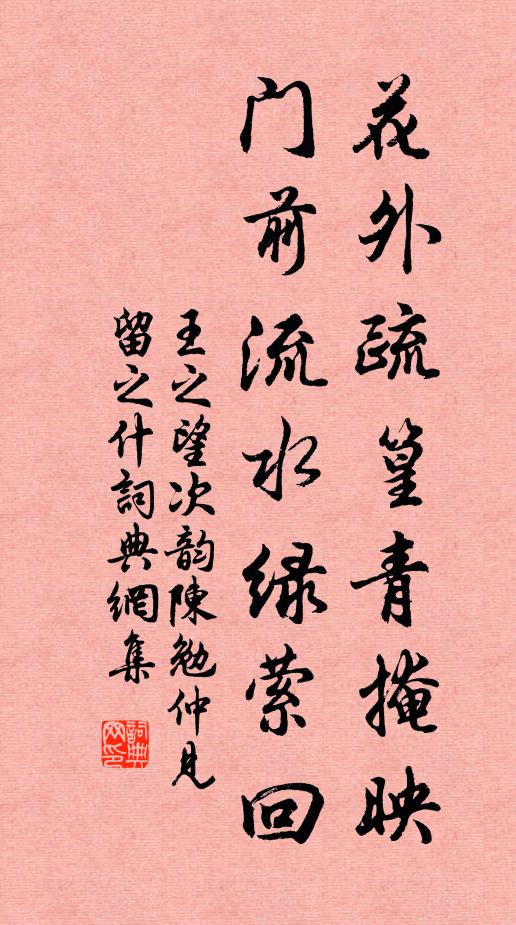 花外疏篁青掩映
门前流水绿萦回
王之望次韵陳勉仲見
留之什詞典網集
詞典
网印